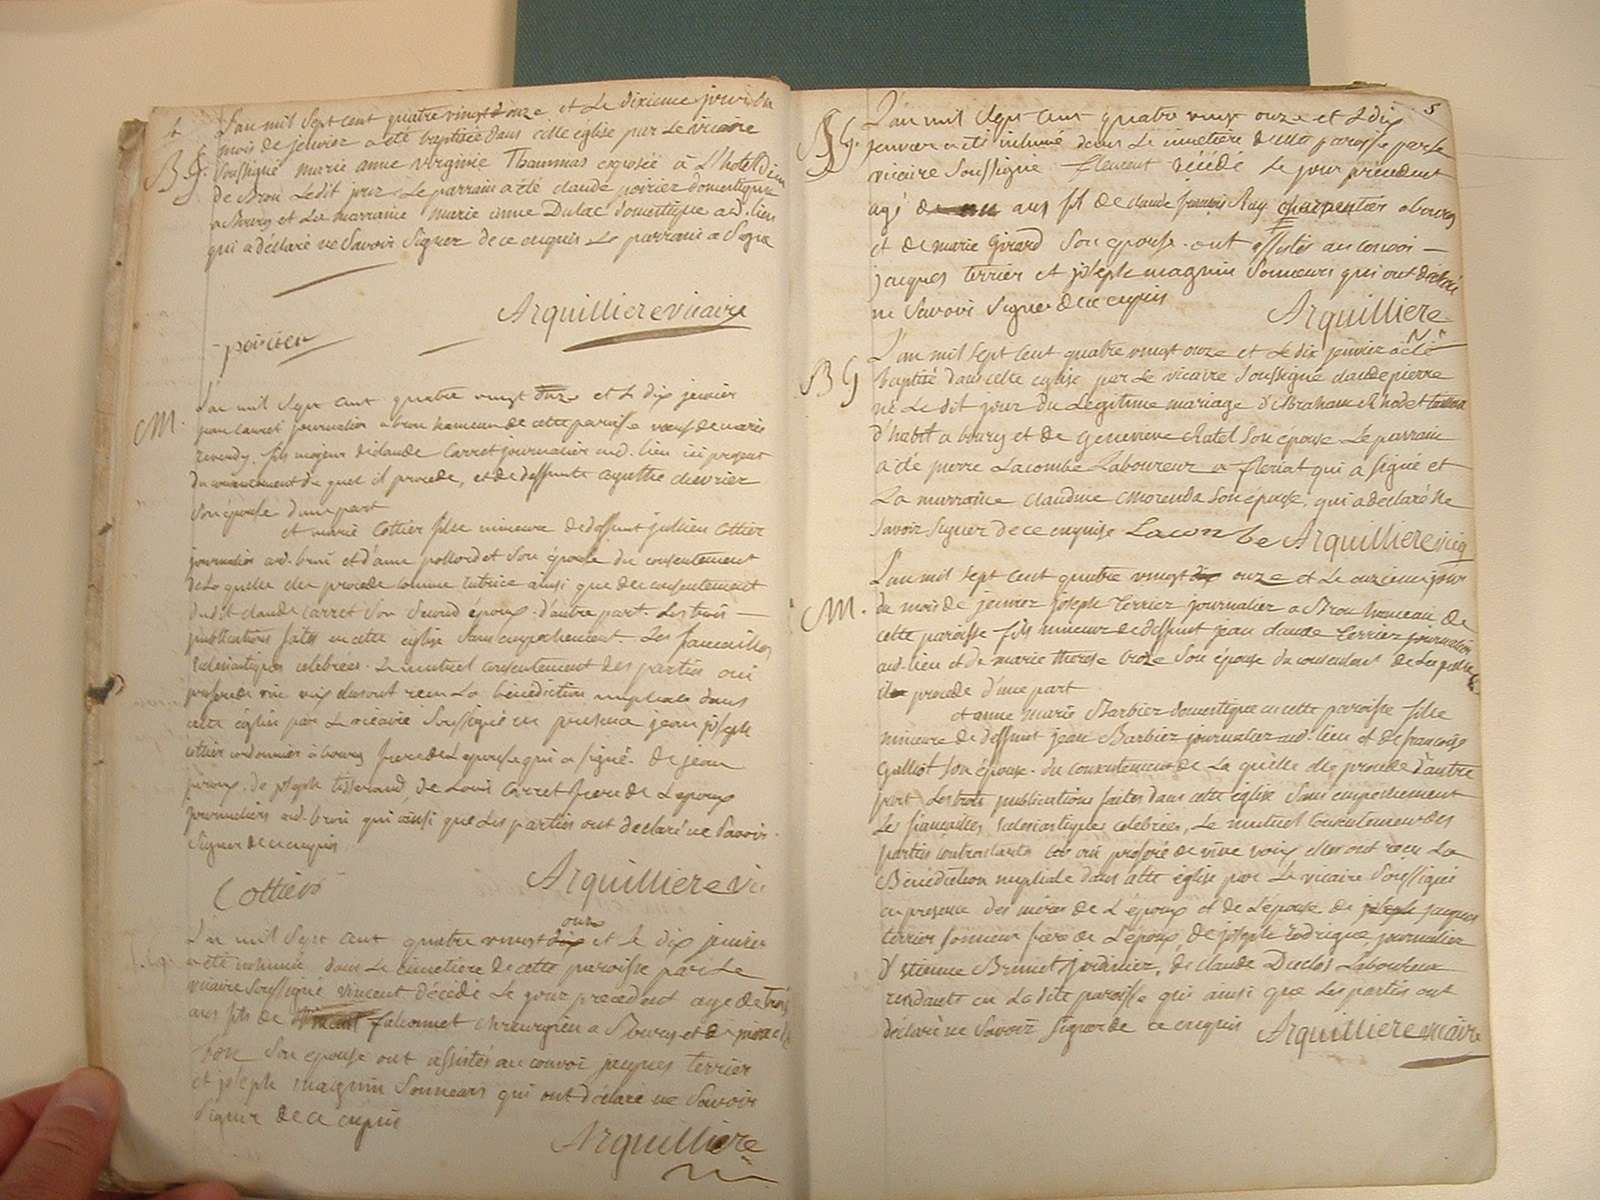 L'an mil sept cent quatre vingt onze et le dixieme jour du
mois de janvier a été baptisée dans cette église par le vicaire
B g. soussigné marie anne virginie Thaummas exposée à L'hotel Dieu
de Brou le dit jour. Le parrain a été claude poirier domestique
a Bourg et la marraine marie anne Dulac domestique aud. lieu
qui a déclaré ne savoir signer de ce enquis le parrain a signé
Arquilliere vicaire
poirier
L'an mil sept cent quatre vingt onze et le dix janvier
M. jean carret journalier a brou hameau de cette paroisse veuf de marie
fils majeur de claude carret journalier aud. lieu ici present
du consentement du quel il procede, et de deffunte agathe chevrier
son épouse d'une part
et marie cottier fille mineure de deffunt jullien cottier
journalier aud. brou et d'anne son épouse du consentement
de laquelle elle procede comme tutrice ainsi que du consentement
dudit claude carret son second époux d'autre part. Les trois
publications faites en cette eglise sans empechement. Les fiancailles
eclesiastiques celebrées. Le mutuel consentement des parties oui
proferé de vive voix elles ont recu la bénédiction nuptiale dans
cette église par le vicaire soussigné en presence jean joseph
cottier cordonnier à bourg frere de l'epouse qui a signé. de jean
de joseph tisserand, de Louis Carret frere de l'epoux
journaliers aud. brou qui ainsi que les parties ont declaré ne savoir
signer de ce enquis
Cottier Arquilliere vic
onze
L'an mil sept cent quatre vingt dix et le dix janvier
a été inhumé dans le cimetiere de cette paroisse par le
vicaire soussigné vincent décédé le jour precedent age de trois
ans fils de falconnet chirurgien a Bourg et de
son epouse ont assistés au convoi jacques terrier
et joseph magnin sonneurs qui ont déclaré ne savoir
signer de ce enquis
Arquilliere
5
L'an mil sept cent quatre vingt onze et le dix
janvier a été inhumé dans le cimetiere de cette paroisse par le
vicaire soussigné florent décédé le jour précédent
agé de ans fils de claude françois Ray charpentier a bourg
et de marie Girard son épouse. ont assistés au convoi
jacques terrier et joseph magnin sonneurs qui ont déclaré
ne savoir signer de ce enquis
Arquilliere
L'an mil sept cent quatre vingt onze et le dix janvier a été
B G baptisé dans cette eglise par le vicaire soussigné claude pierre
né le dit jour du légitime mariage d'Abraham
d'habit a bourg et de Genevieve Ratel son épouse Le parrain
a été pierre Lacombe Laboureur a fleriat qui a signé et
La marraine claudine morenda son épouse, qui a déclaré ne
savoir signer de ce enquise Lacombe Arquilliere vicq
L'an mil sept cent quatre vingt dix onze et le onzieme jour
M. du mois de janvier joseph terrier journalier a Brou hameau de
cette paroisse fils mineur de deffunt jean claude terrier journalier
aud. lieu et de marie therese son épouse du consentement de laquelle
il procede d'une part
et anne marie Barbier domestique en cette paroisse fille
mineure de deffunt jean Barbier journalier aud. lieu et de françoise
Galliot son épouse. du consentement de la quelle elle procede d'autre
part Les trois publications faites dans cette église sans empechement
Les fiançailles eclesiastiques celebrées, Le mutuel consentement des
parties contractantes oui proferé de vive voix elles ont recu la
Bénédiction nuptiale dans cette église par le vicaire soussigné
en presence des mères de l'époux et de l'epouse de joseph jacques
terrier sonneur frere de l'époux, de joseph rodrigue journalier
d'etienne Brunet jardinier, de claude Duclos Laboureur
residants en la dite paroisse qui ainsi que les parties ont
déclaré ne savoir signer de ce enquis Arquilliere vicaire